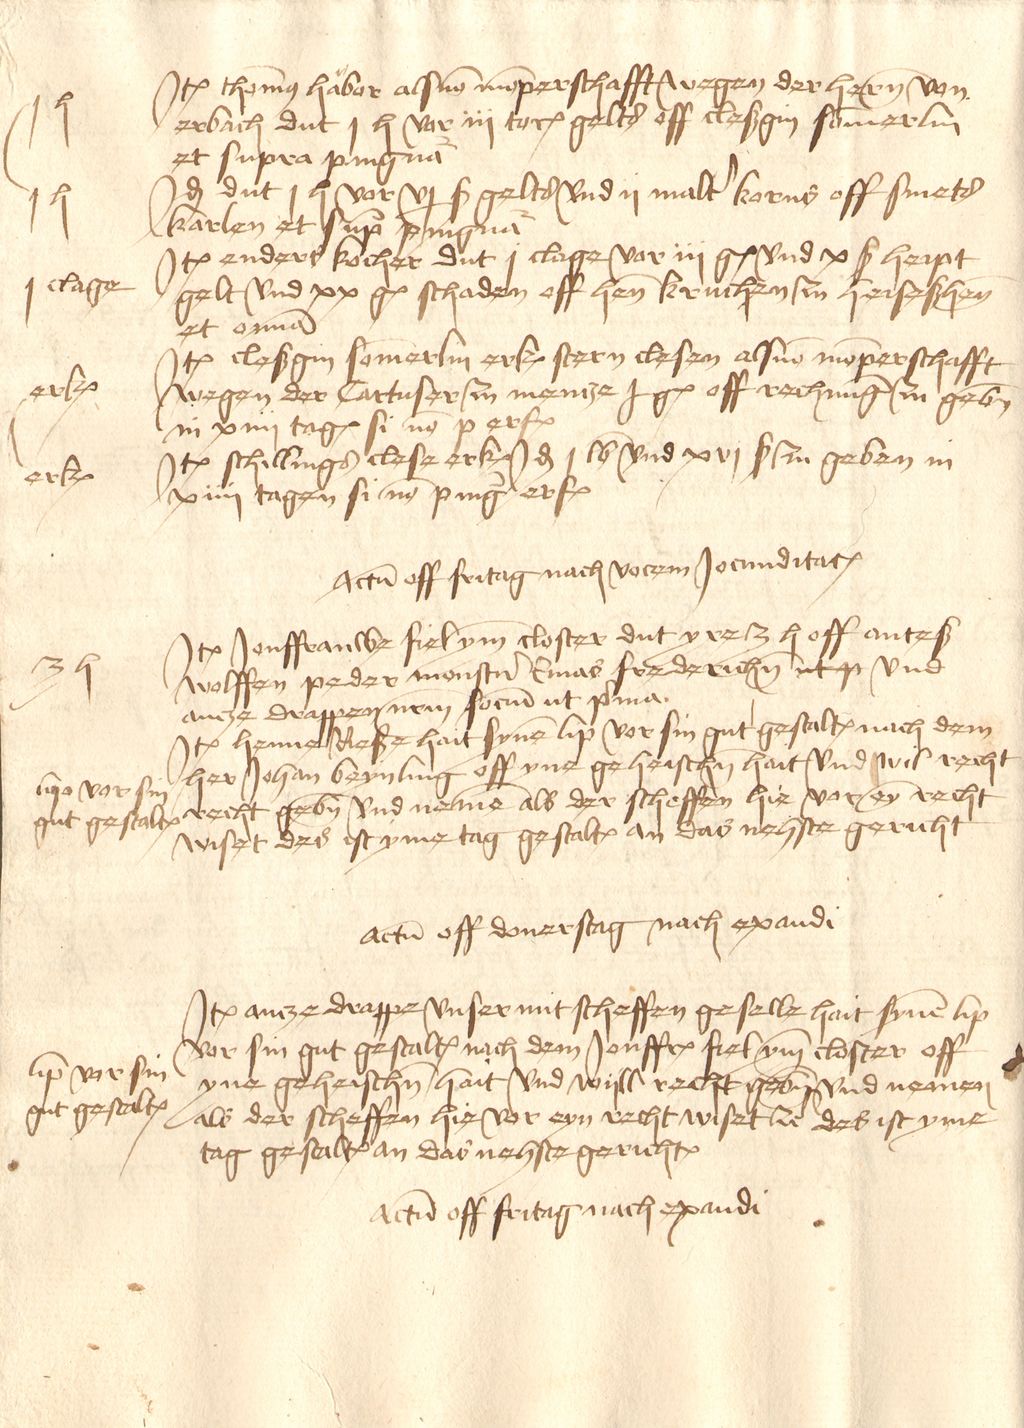 1 h
Jt(em) thom(us) habor als von mo(m)perschafft wegen der hern von
erbach dut 1 h vor iii torn(os) gelts off cleßgin somerlin
et supra pingnu(s)
1 h
Id(em) dut 1 h vor vi ß gelts vnd ii malt(er) korns off smets
karlen et sup(ra) pingnu(s)
1 clage
Jt(em) enders kocher dut 1 clage vor iii g(u)l(den) vnd x ß heupt
gelt vnd xx g(u)l(den) schaden off hen kruchen zu
et om(n)ia
erk(en)
Jt(em) cleßgin somerlin erk(en) stern clesen als von mo(m)perschafft
wegen der Cartuser zu mencze 1 g(u)l(den) off rechnu(n)g zu gebin
in xiiii tag(en) si no(n) p erf(olget)
erk(en)
Jt(em) schillings clese erk(en) Id(em) 1 lb vnd xvi ß zu geben in
xiiii tagen si no(n) ping(nora) erf(olget)
Actu(m) off fritag nach vocem Jocunditat(is)
3 h
Jt(em) Jonffrauwe fiel ym closter dut yre 3 h off anteß
wolffen peder
ancze drappen vnd socru(m) ut p(ri)ma
lip vor sin
gut gestalt
Jt(em) henne Reße hait syne(n) lip vor sin gut gestalt nach dem
her Johan beynling off yne geheischen hait vnd wil recht
recht geb(e)n vnd neme(n) als der scheffen hie vor ey recht
wiset des ist yme tag gestalt an das nehste gericht
Actu(m) off donerstag nach exaudi
lip vor sin
gut gestalt
Jt(em) ancze drappe vnser mit scheffen geselle hait syne(n) lip
vor sin gut gestalt nach dem Jonffr(auwe) fiel ym closter off
yne geheischen hait vnd will recht geb(e)n vnd nemen
als der scheffen hie vor eyn recht wiset des ist yme
tag gestalt an das nehste gericht
Actu(m) off fritag nach exaudi